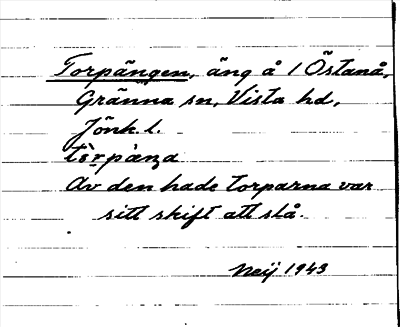 Torpängen, äng å 1 Östanå,
Gränna sn, Vista hd,
Jönk. l.
Av den hade torparna var
sitt skift att slå.
Neij 1943